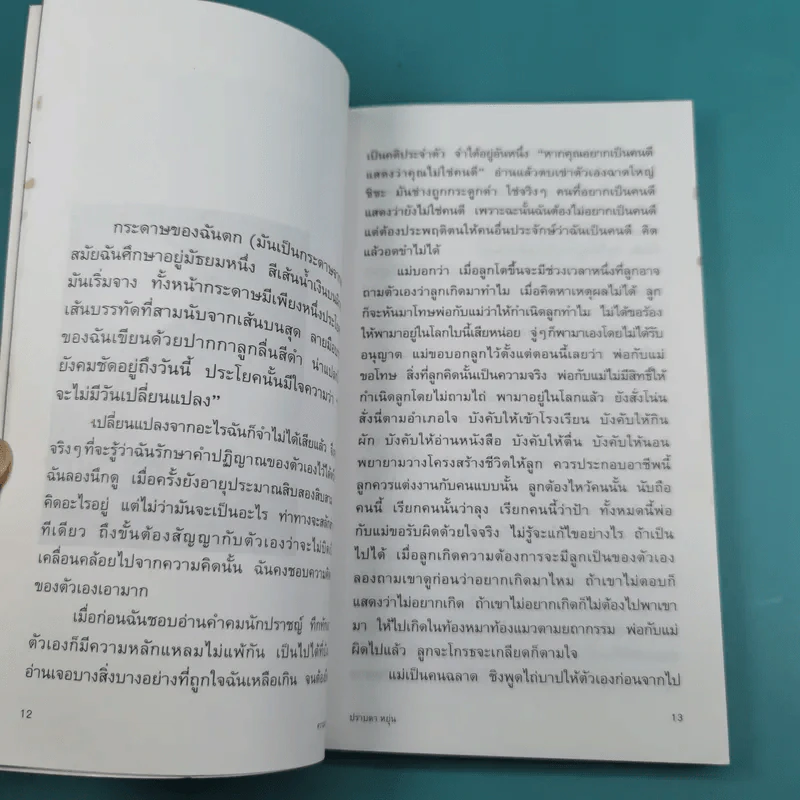 กระดาษของฉันตก (มันเป็นกระดาษ
สมัยฉันศึกษาอยู่มัธยมหนึ่ง สีเส้นน้ำเงินบน
มันเริ่มจาง ทั้งหน้ากระดาษมีเพียงหนึ่งประโยค
เส้นบรรทัดที่สามนับจากเส้นบนสุด ลายมือ
ของฉันเขียนด้วยปากกาลูกลื่นสีดำ น่าแปลก
ยังคมชัดอยู่ถึงวันนี้ ประโยคนั้นมีใจความว่า
จะไม่มีวันเปลี่ยนแปลง”
เปลี่ยนแปลงจากอะไรฉันก็จำไม่ได้เสียแล้ว
จริงๆที่จะรู้ว่าฉันรักษาคำปฏิญาณของตัวเองไว้ได้
ฉันลองนึกดู เมื่อครั้งยังอายุประมาณสิบสองสิบสาม
คิดอะไรอยู่ แต่ไม่ว่ามันจะเป็นอะไร ท่าทางจะ
ทีเดียว ถึงขั้นต้องสัญญากับตัวเองว่าจะไม่
เคลื่อนคล้อยไปจากความคิดนั้น ฉันคงชอบความคิด
ของตัวเองเอามาก
เมื่อก่อนฉันชอบอ่านคำคมนักปราชญ์ ทึกทัก
ตัวเองก็มีความหลักแหลมไม่แพ้กัน เป็นไปได้ที่
อ่านเจอบางสิ่งบางอย่างที่ถูกใจฉันเหลือเกิน จนต้อง
12
เป็นคติประจำตัว จำได้อยู่อันหนึ่ง “หากคุณอยากเป็นคนดี
แสดงว่าคุณไม่ใช่คนดี” อ่านแล้วตบเข่าตัวเองฉาดใหญ่
ชิชะ มันช่างถูกกระดูกดำ ใช่จริงๆ คนที่อยากเป็นคนดี
แสดงว่ายังไม่ใช่คนดี เพราะฉะนั้นฉันต้องไม่อยากเป็นคนดี
แต่ต้องประพฤติตนให้คนอื่นประจักษ์ว่าฉันเป็นคนดี คิด
แล้วอดขำไม่ได้
แม่บอกว่า เมื่อลูกโตขึ้นจะมีช่วงเวลาหนึ่งที่ลูกอาจ
ถามตัวเองว่าลูกเกิดมาทำไม เมื่อคิดหาเหตุผลไม่ได้ ลูก
ก็จะหันมาโทษพ่อกับแม่ว่าให้กำเนิดลูกทำไม ไม่ได้ขอร้อง
ให้พามาอยู่ในโลกใบนี้เสียหน่อย จู่ๆก็พามาเองโดยไม่ได้รับ
อนุญาต แม่ขอบอกลูกไว้ตั้งแต่ตอนนี้เลยว่า พ่อกับแม่
ขอโทษ สิ่งที่ลูกคิดนั้นเป็นความจริง พ่อกับแม่ไม่มีสิทธิ์ให้
กำเนิดลูกโดยไม่ถามไถ่ พามาอยู่ในโลกแล้ว ยังสั่งโน่น
สั่งนี่ตามอำเภอใจ บังคับให้เข้าโรงเรียน บังคับให้กิน
ผัก บังคับให้อ่านหนังสือ บังคับให้ตื่น บังคับให้นอน
พยายามวางโครงสร้างชีวิตให้ลูก ควรประกอบอาชีพนี้
ลูกควรแต่งงานกับคนแบบนั้น ลูกต้องไหว้คนนั้น นับถือ
คนนี้ เรียกคนนั้นว่าลุง เรียกคนนี้ว่าป้า ทั้งหมดนี้พ่อ
กับแม่ขอรับผิดด้วยใจจริง ไม่รู้จะแก้ไขอย่างไร ถ้าเป็น
ไปได้ เมื่อลูกเกิดความต้องการจะมีลูกเป็นของตัวเอง
ลองถามเขาดูก่อนว่าอยากเกิดมาไหม ถ้าเขาไม่ตอบก็
แสดงว่าไม่อยากเกิด ถ้าเขาไม่อยากเกิดก็ไม่ต้องไปพาเขา
มา ให้ไปเกิดในท้องหมาท้องแมวตามยถากรรม พ่อกับแม่
ผิดไปแล้ว ลูกจะโกรธจะเกลียดก็ตามใจ
แม่เป็นคนฉลาด ชิงพูดไถ่บาปให้ตัวเองก่อนจากไป
ปราบดา หยุ่น
13